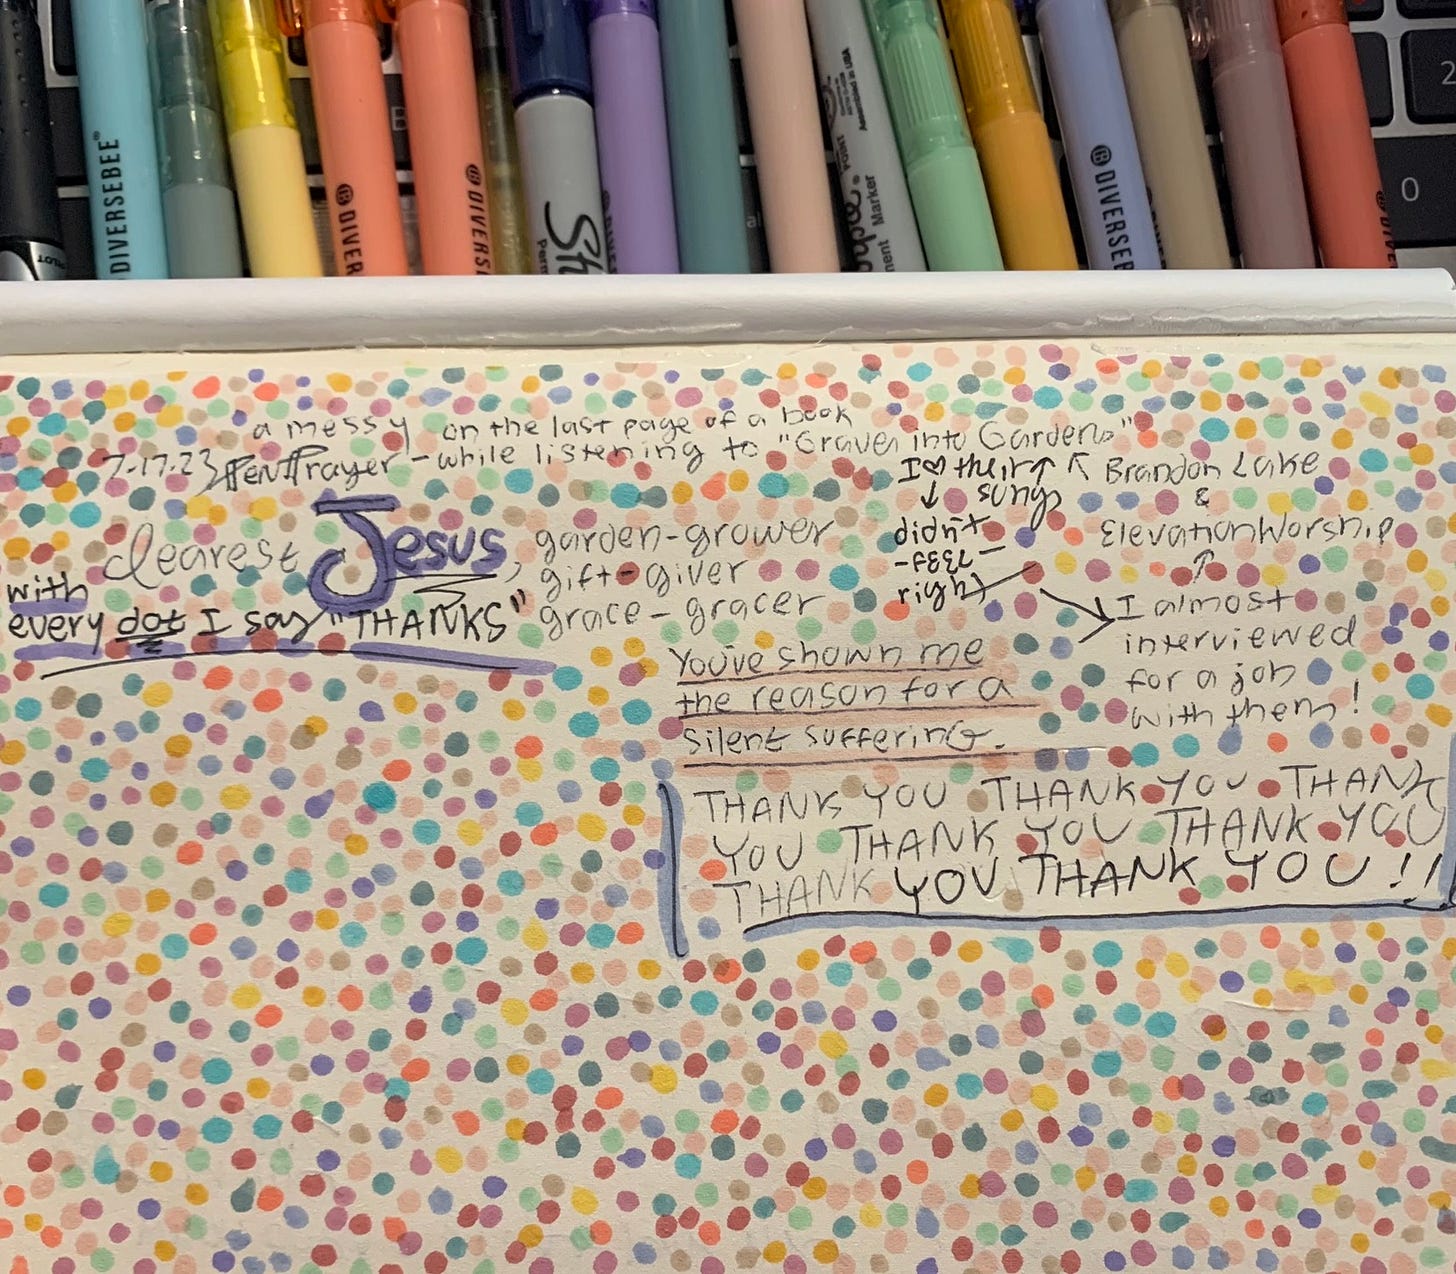 DIVERSEBEE
DIVER
DIVERS
Sh
Perm
POINT
Marker
nent
Assembled in USA
DIVERSEB
PILOT
B
2
0
a messy on the last page of a book
7-17-23 #PenPrayer - while listening to "Graves into Gardens"
I ♡ their songs
didn't
-FEEL-
right
Brandon Lake
&
Elevation Worship
I almost
interviewed
for a job
with them!
dearest Jesus, garden-grower
gift-giver
grace-gracer
with
every dot I say "THANKS"
You've shown me
the reason for a
silent suffering.
THANK YOU THANK YOU THANK
YOU THANK YOU THANK YOU
THANK YOU THANK YOU!!